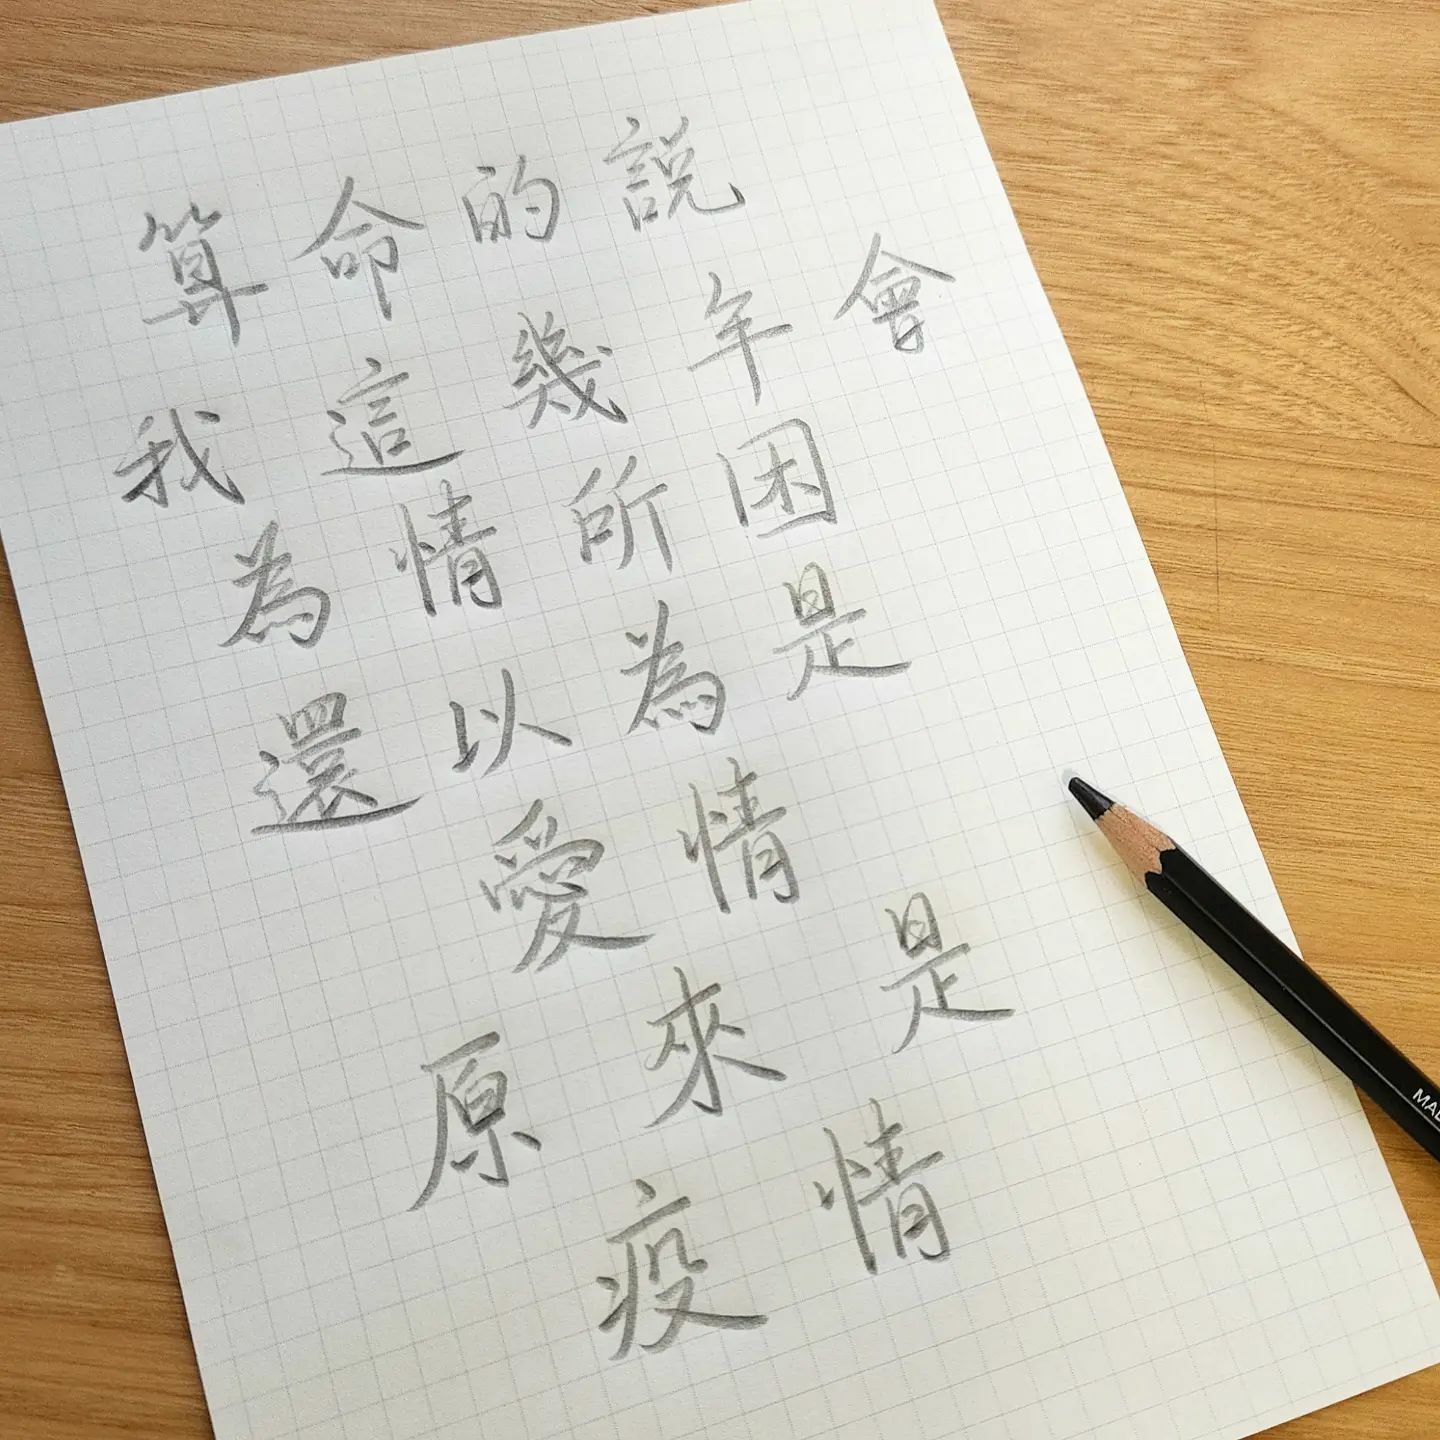 算命的說
我這幾年會
為情所困
還以為是
愛情
原來是
疫情
MA